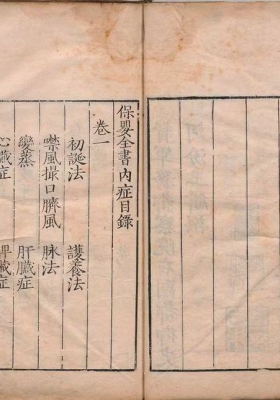 保嬰全書內症目錄
卷一
初誕法 護養法
噤風撮口臍風 脉法
變蒸 肝臟症
心臟症 脾臟症